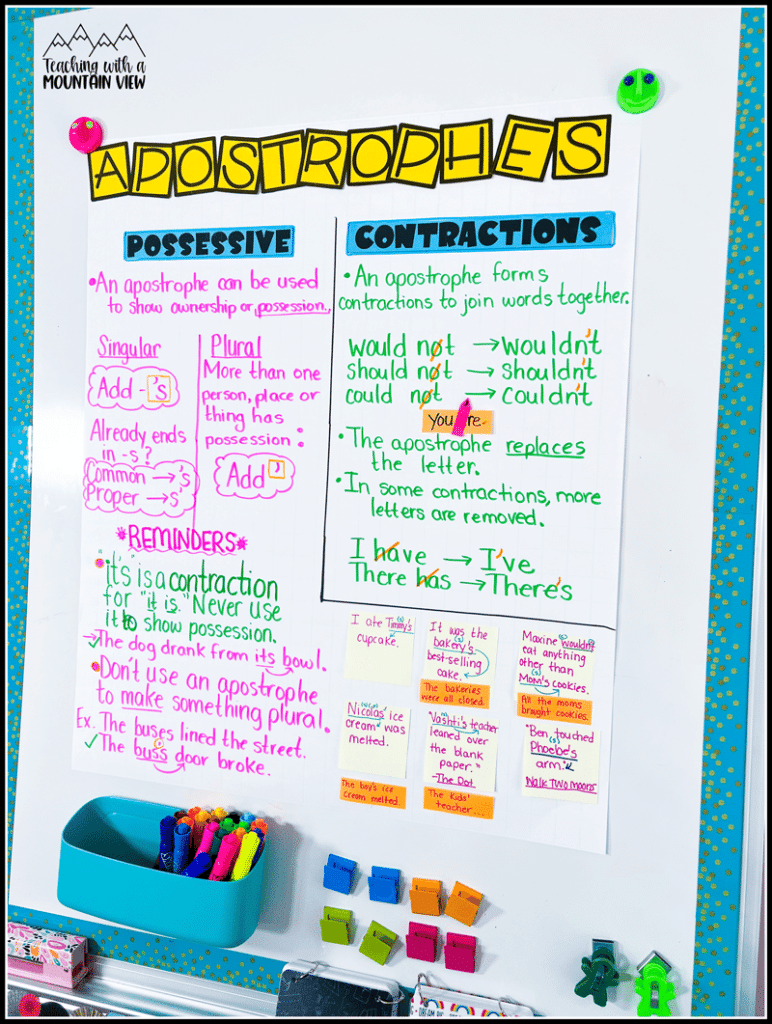 Teaching with a
MOUNTAIN VIEW
APOSTROPHES
POSSESSIVE
•An apostrophe can be used
to show ownership or possession.
Singular
Add -'s
Already ends
in -s?
Common →'s
Proper →s'
Plural
More than one
person, place or
thing has
possession:
Add '
*REMINDERS*
•"it's" is a contraction
for "it is." Never use
it to show possession.
→The dog drank from its bowl.
•Don't use an apostrophe
to make something plural.
Ex. The buses lined the street.
✓The buss' door broke.
CONTRACTIONS
•An apostrophe forms
contractions to join words together.
would not →wouldn't
should not → shouldn't
could not → couldn't
You re
•The apostrophe replaces
the letter.
•In some contractions, more
letters are removed.
I have → I've
There has →There's
I ate Timmy's
cupcake.
It was the
bakery's
best-selling
cake.
The bakeries
were all closed.
Maxine wouldn't
eat anything
other than
Mom's cookies.
All the moms
brought cookies.
Nicolas' ice
cream was
melted.
The boy's ice
cream melted.
"Vashti's teacher
leaned over
the blank
paper."
-The Dot
The kids'
teacher...
"Ben touched
Phoebe's
arm."
Walk Two Moons